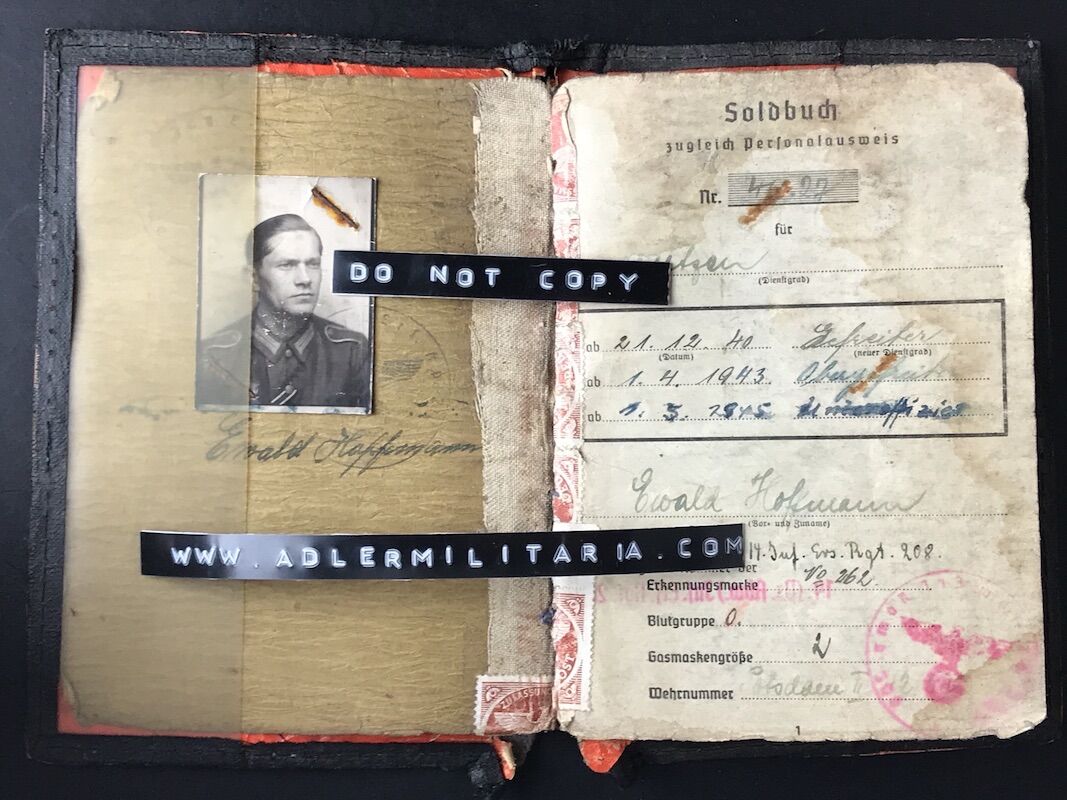 DO NOT COPY
Ewald Hoffmann
WWW.ADLERMILITARIA.COM
Soldbuch
zugleich Personalausweis
Nr.
für
(Dienstgrad)
ab 21. 12. 40 Gefreiter
(Datum) (neuer Dienstgrad)
ab 1. 4. 1943 Obergefreiter
ab 1. 3. 1945 Unteroffizier
Ewald Hoffmann
(Vor- und Zuname)
14. Inf. Ers. Rgt. 208.
der
Erkennungsmarke No 262
Blutgruppe O.
Gasmaskengröße 2
Wehrnummer
1
ZULASSUNG
POST